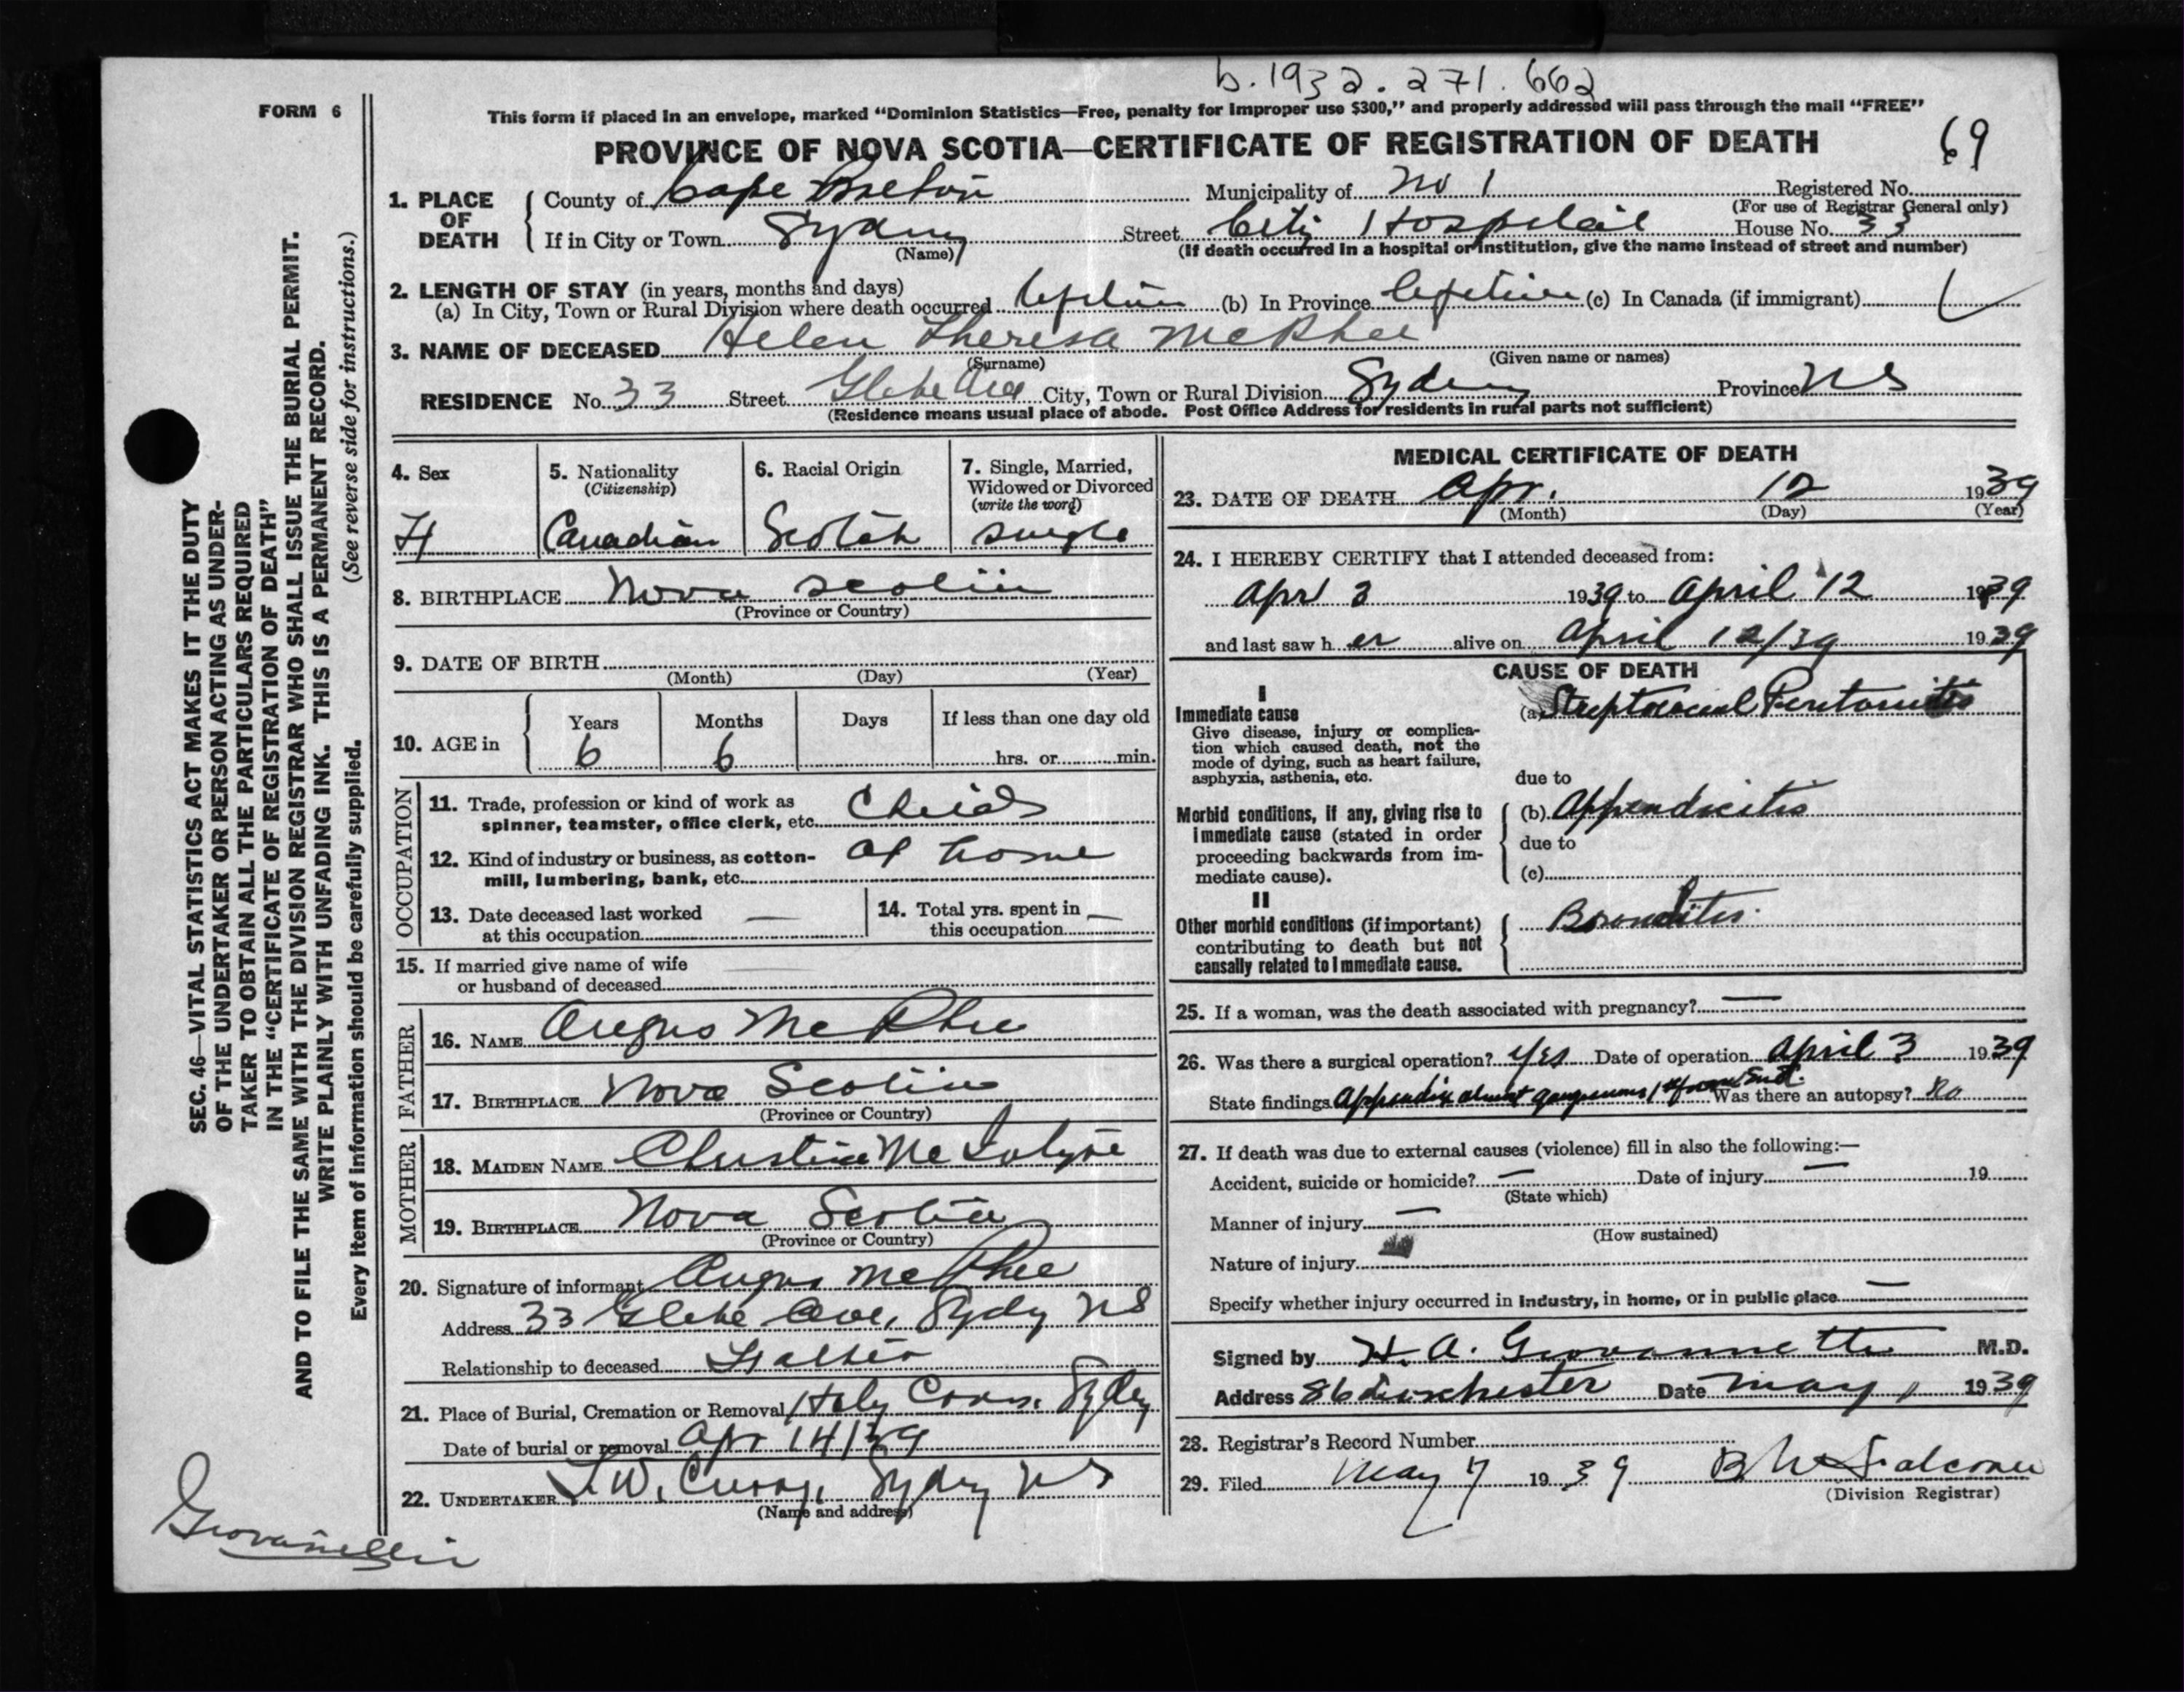 b. 1932. 271. 662
FORM 6
This form if placed in an envelope, marked "Dominion Statistics—Free, penalty for improper use $300," and properly addressed will pass through the mail "FREE"
PROVINCE OF NOVA SCOTIA—CERTIFICATE OF REGISTRATION OF DEATH
69
1. PLACE OF DEATH
County of Cape Breton Municipality of No 1 Registered No.
(For use of Registrar General only)
If in City or Town Sydney Street City Hospital House No. 33
(Name) (If death occurred in a hospital or institution, give the name instead of street and number)
2. LENGTH OF STAY (in years, months and days)
(a) In City, Town or Rural Division where death occurred lifetime (b) In Province lifetime (c) In Canada (if immigrant)
3. NAME OF DECEASED Helen Theresa McPhee
(Surname) (Given name or names)
RESIDENCE No. 33 Street Glebe Ave City, Town or Rural Division Sydney Province NS
(Residence means usual place of abode. Post Office Address for residents in rural parts not sufficient)
4. Sex
F
5. Nationality
(Citizenship)
Canadian
6. Racial Origin
Scotch
7. Single, Married,
Widowed or Divorced
(write the word)
single
8. BIRTHPLACE Nova Scotia
(Province or Country)
9. DATE OF BIRTH
(Month) (Day) (Year)
10. AGE in
Years Months Days If less than one day old
6 6 hrs. or min.
OCCUPATION
11. Trade, profession or kind of work as
spinner, teamster, office clerk, etc. Child
12. Kind of industry or business, as cotton-
mill, lumbering, bank, etc. at home
13. Date deceased last worked
at this occupation —
14. Total yrs. spent in
this occupation —
15. If married give name of wife
or husband of deceased
FATHER
16. NAME Angus McPhee
17. BIRTHPLACE Nova Scotia
(Province or Country)
MOTHER
18. MAIDEN NAME Christina McIntyre
19. BIRTHPLACE Nova Scotia
(Province or Country)
20. Signature of informant Angus McPhee
Address 33 Glebe Ave, Sydy NS
Relationship to deceased Father
21. Place of Burial, Cremation or Removal Holy Cross. Sydey
Date of burial or removal Apr 14/39
22. UNDERTAKER W. Curry, Sydney NS
(Name and address)
MEDICAL CERTIFICATE OF DEATH
23. DATE OF DEATH Apr. 12 1939
(Month) (Day) (Year)
24. I HEREBY CERTIFY that I attended deceased from:
Apr 3 1939 to April 12 1939
and last saw her alive on April 12/39 1939
CAUSE OF DEATH
I
Immediate cause
Give disease, injury or complica-
tion which caused death, not the
mode of dying, such as heart failure,
asphyxia, asthenia, etc.
(a) Streptococcal Peritonitis
due to
Morbid conditions, if any, giving rise to
immediate cause (stated in order
proceeding backwards from im-
mediate cause).
(b) Appendicitis
due to
(c)
II
Other morbid conditions (if important)
contributing to death but not
causally related to immediate cause.
Bronchitis.
25. If a woman, was the death associated with pregnancy? —
26. Was there a surgical operation? Yes Date of operation April 3 1939
State findings Appendix almost gangrenous Was there an autopsy? No
27. If death was due to external causes (violence) fill in also the following:—
Accident, suicide or homicide? — Date of injury — 19
(State which)
Manner of injury —
(How sustained)
Nature of injury
Specify whether injury occurred in industry, in home, or in public place —
Signed by H. A. Giovannetti M.D.
Address 86 Dorchester Date May 1 1939
28. Registrar's Record Number
29. Filed May 7 1939 Falconer
(Division Registrar)
SEC. 46—VITAL STATISTICS ACT MAKES IT THE DUTY
OF THE UNDERTAKER OR PERSON ACTING AS UNDER-
TAKER TO OBTAIN ALL THE PARTICULARS REQUIRED
IN THE "CERTIFICATE OF REGISTRATION OF DEATH"
AND TO FILE THE SAME WITH THE DIVISION REGISTRAR WHO SHALL ISSUE THE BURIAL PERMIT.
WRITE PLAINLY WITH UNFADING INK. THIS IS A PERMANENT RECORD.
Every item of information should be carefully supplied. (See reverse side for instructions.)